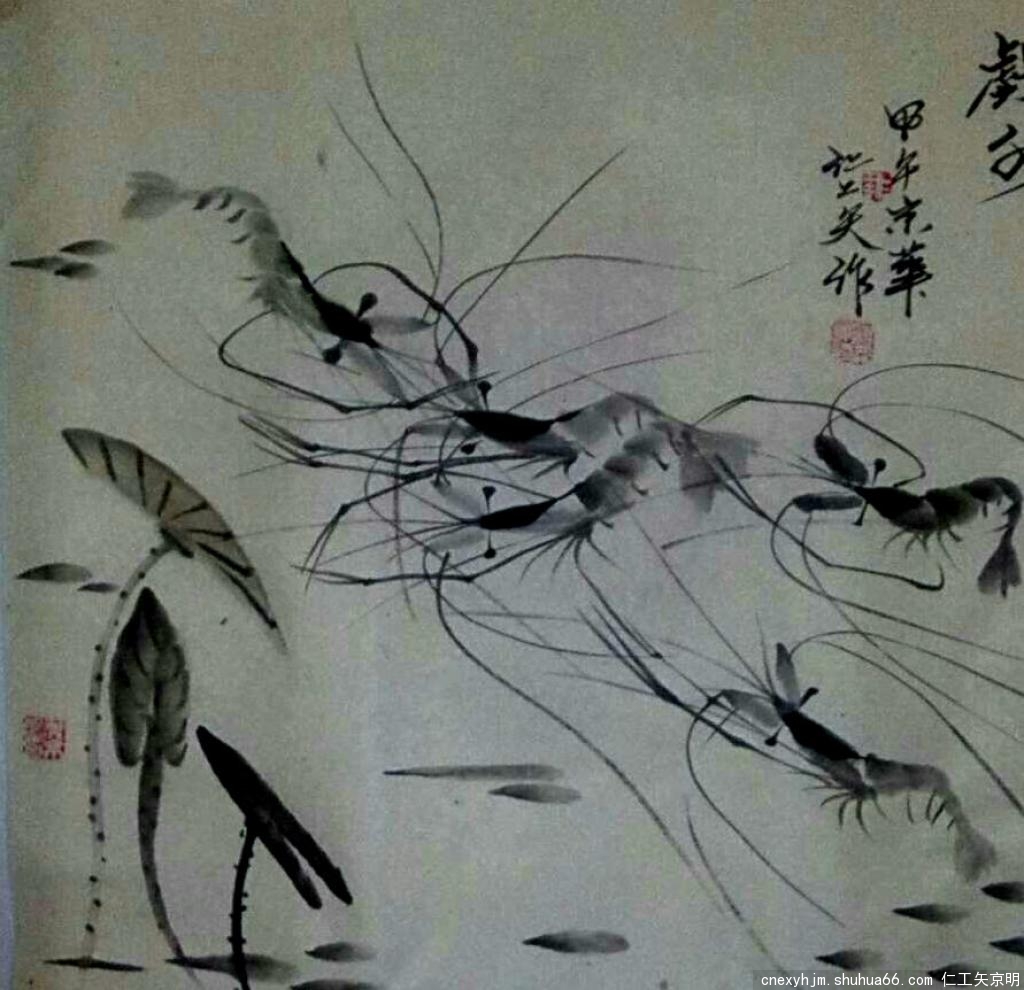 戲水
甲午京華
仁工矢作
cnexyhjm.shuhua66.com 仁工矢京明